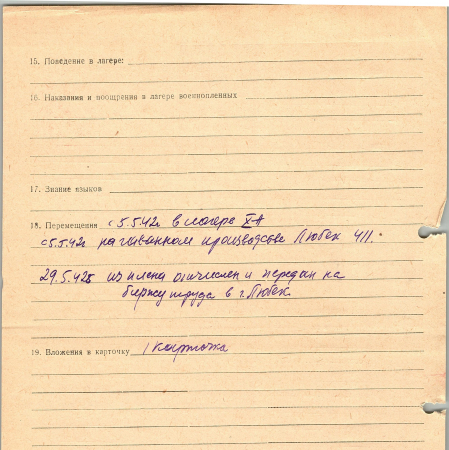 15. Поведение в лагере:
16. Наказания и поощрения в лагере военнопленных
17. Знание языков
18. Перемещения с 5.5.42г в лагере XA
с 5.5.42г на производстве Любек 411.
29.5.42г из плена отчислен и передан на
биржу труда в г. Любек.
19. Вложения в карточку 1 карточка